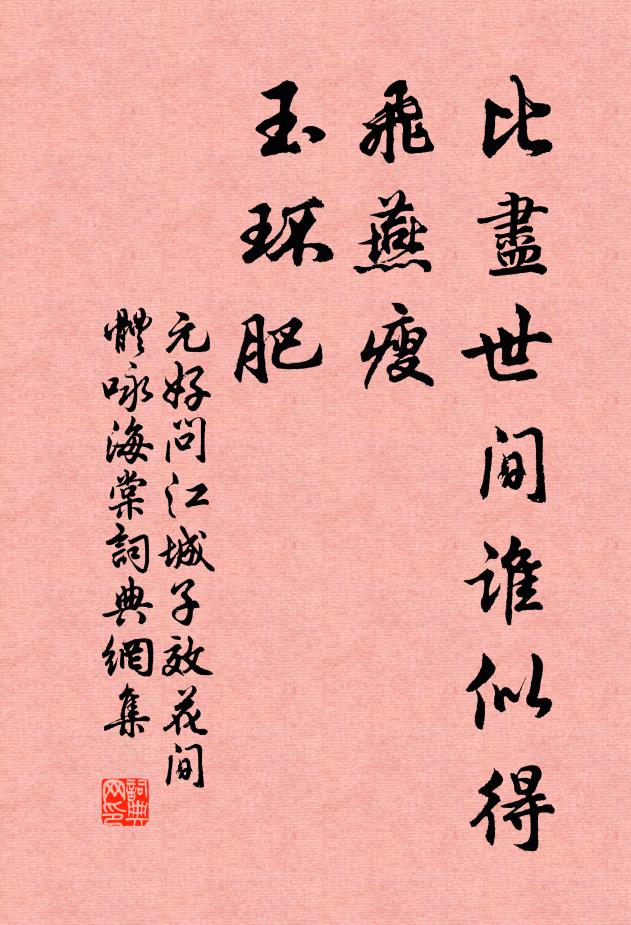 比盡世间谁似得
飛燕瘦
玉环肥
元好问江城子效花间
體咏海棠詞典網集
詞典
网印